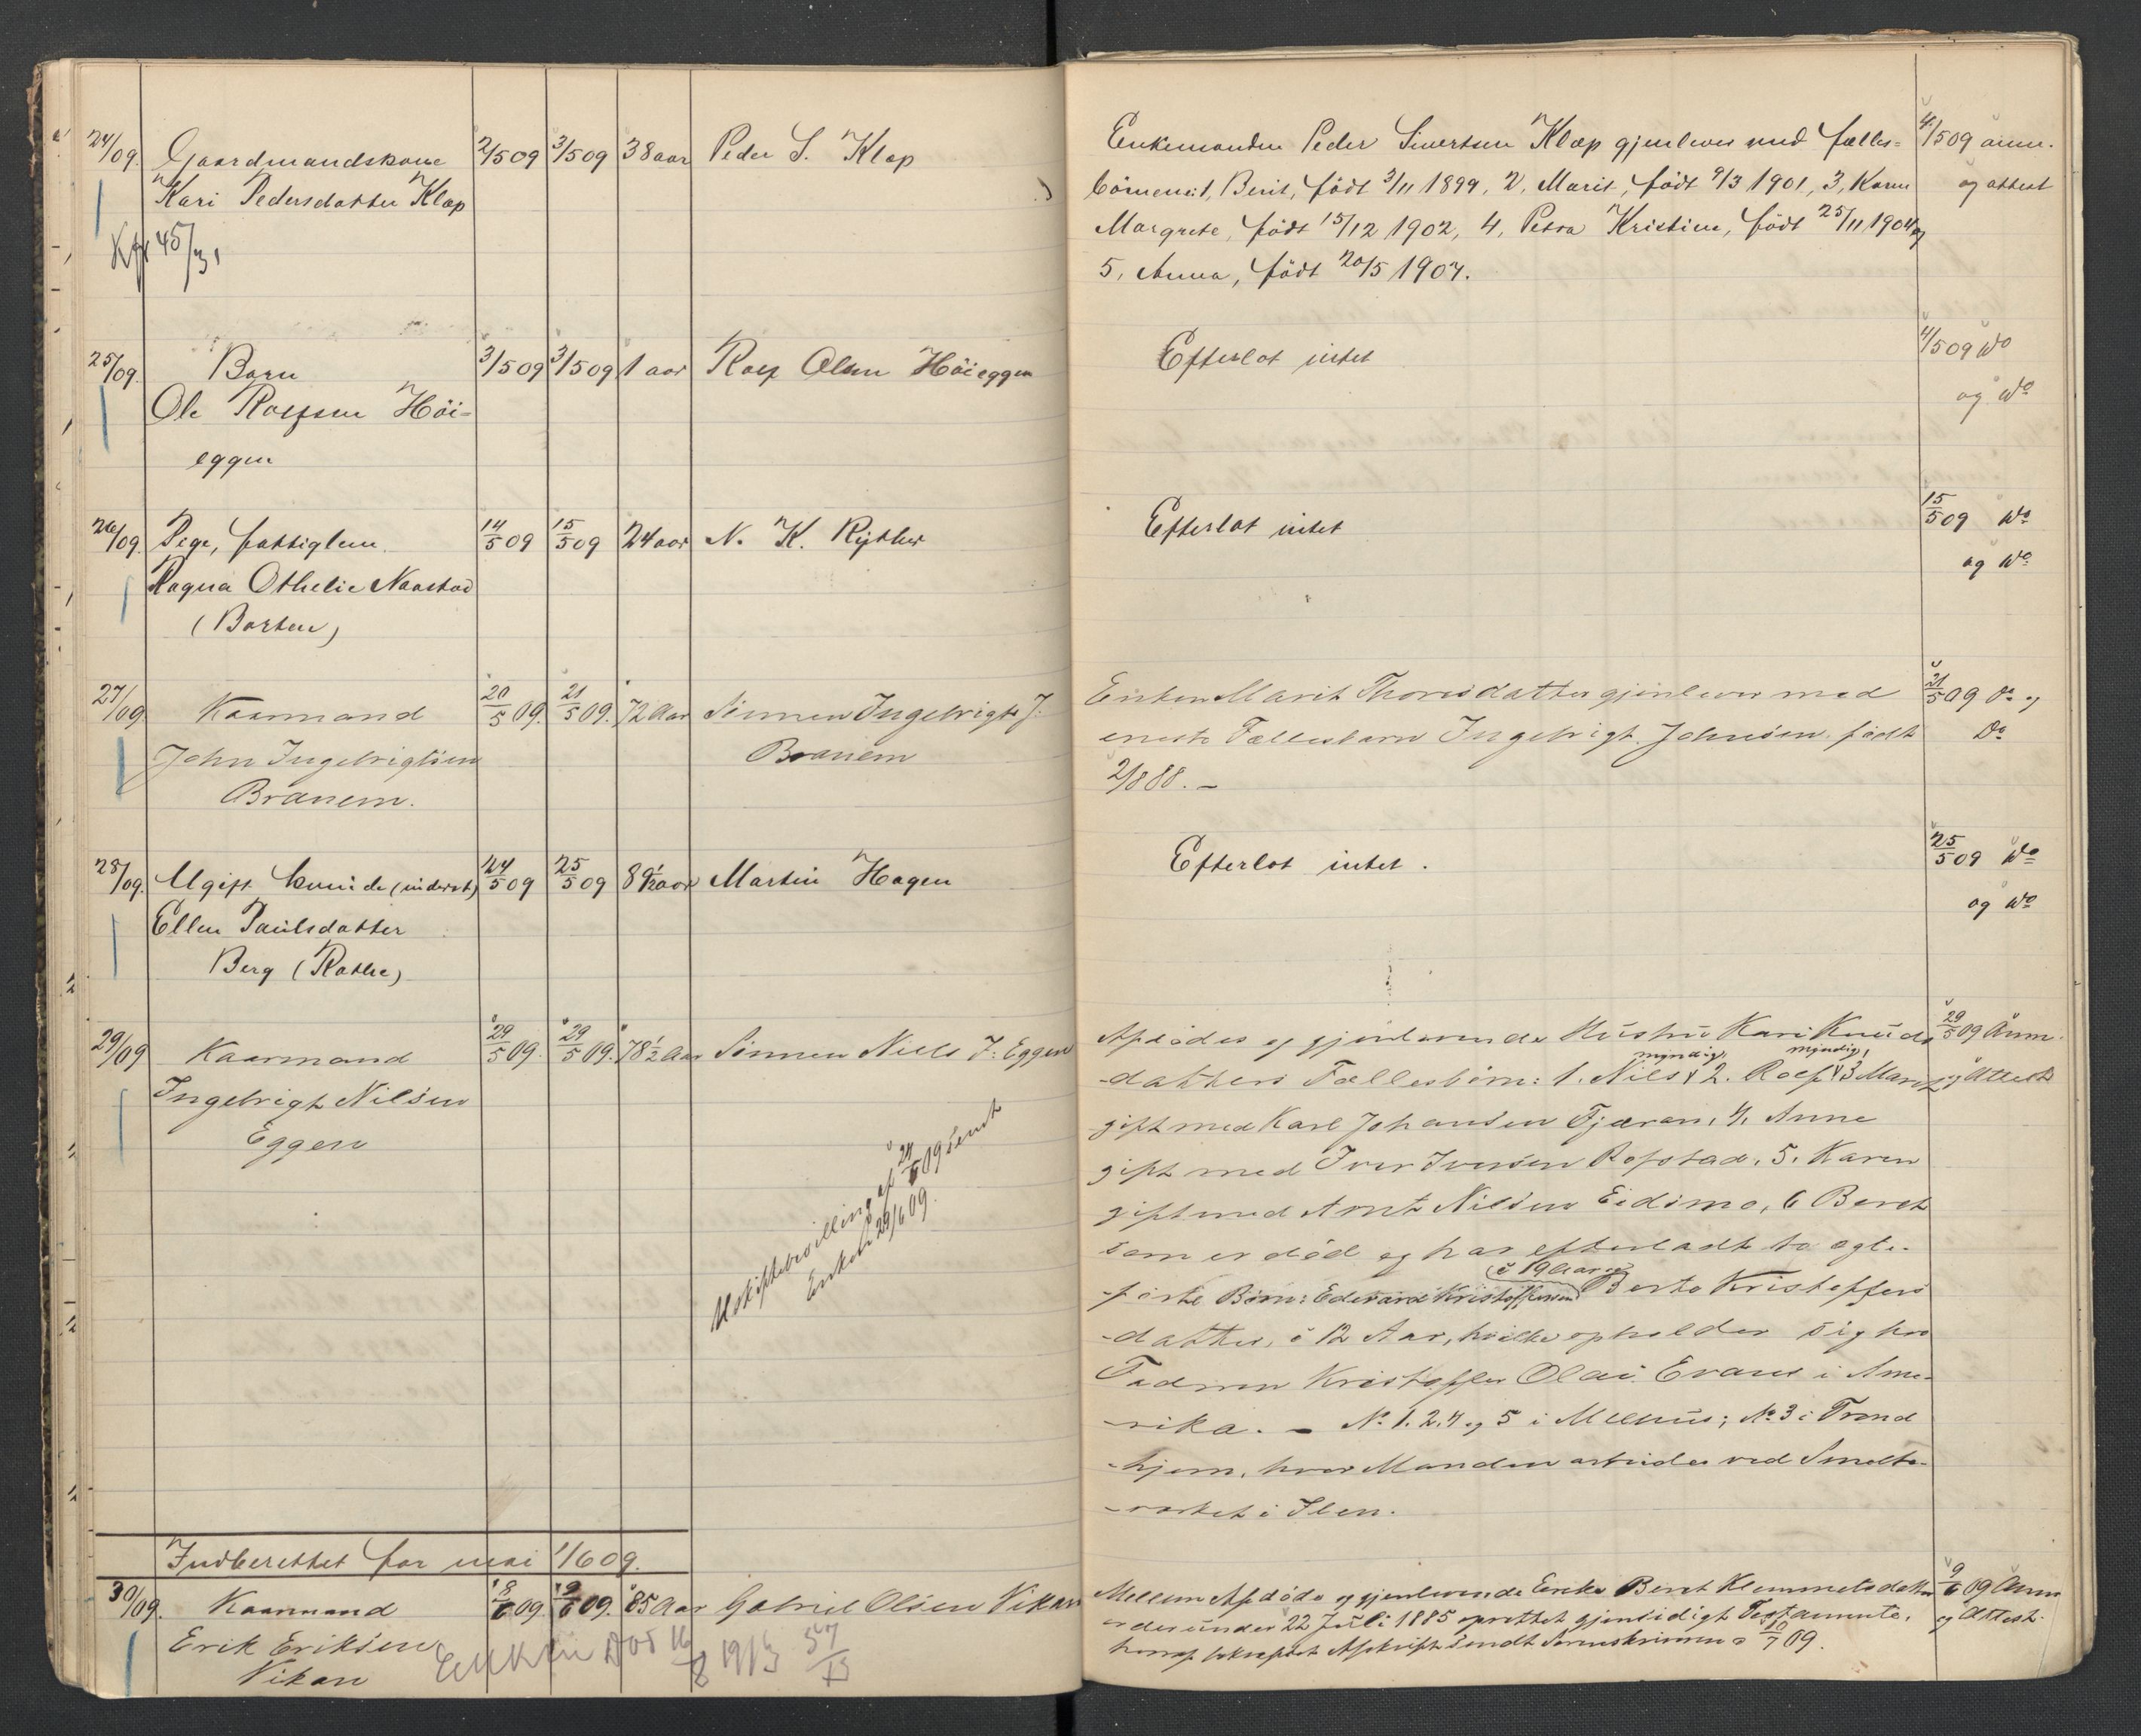 24/09. Gaardmandskone 2/5 09 3/5 09 38 aar Peder S. Klæp
Kari Pedersdatter Klæp
Kfr 45/31
Enkemanden Peder Sivertsen Klæp gjenlever med fælles-
börnene: 1, Berit, födt 3/11 1899, 2, Marit, födt 9/3 1901, 3, Karen
Margrete, födt 15/12 1902, 4, Petra Kristine, födt 25/11 1904 og
5, Anna, födt 20/5 1907.
4/5 09 anm.
og attest
25/09. Barn 3/5 09 3/5 09 1 aar Rolf Olsen Höieggen
Ole Rolfsen Höi-
eggen
Efterlot intet
4/5 09 do
og do
26/09. Pige, fattiglem 14/5 09 15/5 09 24 aar N. K. Rÿther
Ragna Othelie Naastad
(Borten)
Efterlot intet
15/5 09 do
og do
27/09 Kaarmand 20/5 09. 21/5 09. 72 Aar Sönnen Ingebrigt J.
John Ingebrigtsen Branem
Branem.
Enken Marit Thoresdatter gjenlever med
eneste Fællesbarn Ingebrigt Johnsen, född
2/8 88. –
21/5 09 Do og
Do
28/09. Ugift kvinde (inderst) 24/5 09 25/5 09 89 1/2 aar Martin Hagen
Ellen Paulsdatter
Berg (Rathe)
Efterlot intet.
25/5 09 do
og do
29/09 Kaarmand 29/5 09. 29/5 09. 78 1/2 Aar Sönnen Nils J. Eggen
Ingebrigt Nilsen
Eggen
Uskiftebevilling af 24/6 09 sendt
Enken 29/6 09.
Afdödes og gjenlevende Hustru Kari Knuds
-datters Fællesbörn: 1. Nils, myndig, 2. Rolf, myndig, 3 Marit
gift med Karl Johansen Tjæran, 4. Anne
gift med Iver Iversen Rofstad, 5. Karen
gift med Arnt Nilsen Eidsmo, 6 Beret
som er död og har efterladt to ægte-
födte Börn: Edevard Kristoffersen (i 19 Aar) og Berte Kristoffers
-datter, i 12 Aar, hvilke opholder sig hos
Fadren Kristoffer Olai Evans i Ame-
-rika. – No 1. 2. 4 og 5 i Melhus; No 3 i Trond
-hjem, hvor Manden arbeider ved Smelte-
-værket i Ilen.
29/5 09 Anm.
og Attest
Indberettet for mai 1/6 09.
30/09. Kaarmand 8/6 09. 9/6 09. 85 Aar Gabriel Olsen Vikan
Erik Eriksen
Vikan
Enken död 16/8 1913 57/13
Mellem Afdöde og gjenlevende Enke Beret Klemmetsdatter
er der under 22 Juli 1885 oprettet gjensidigt Testamente,
hvoraf bekræftet Afskrift sendt Sorenskriveren 10/7 09.
9/6 09 Anm
og Attest.